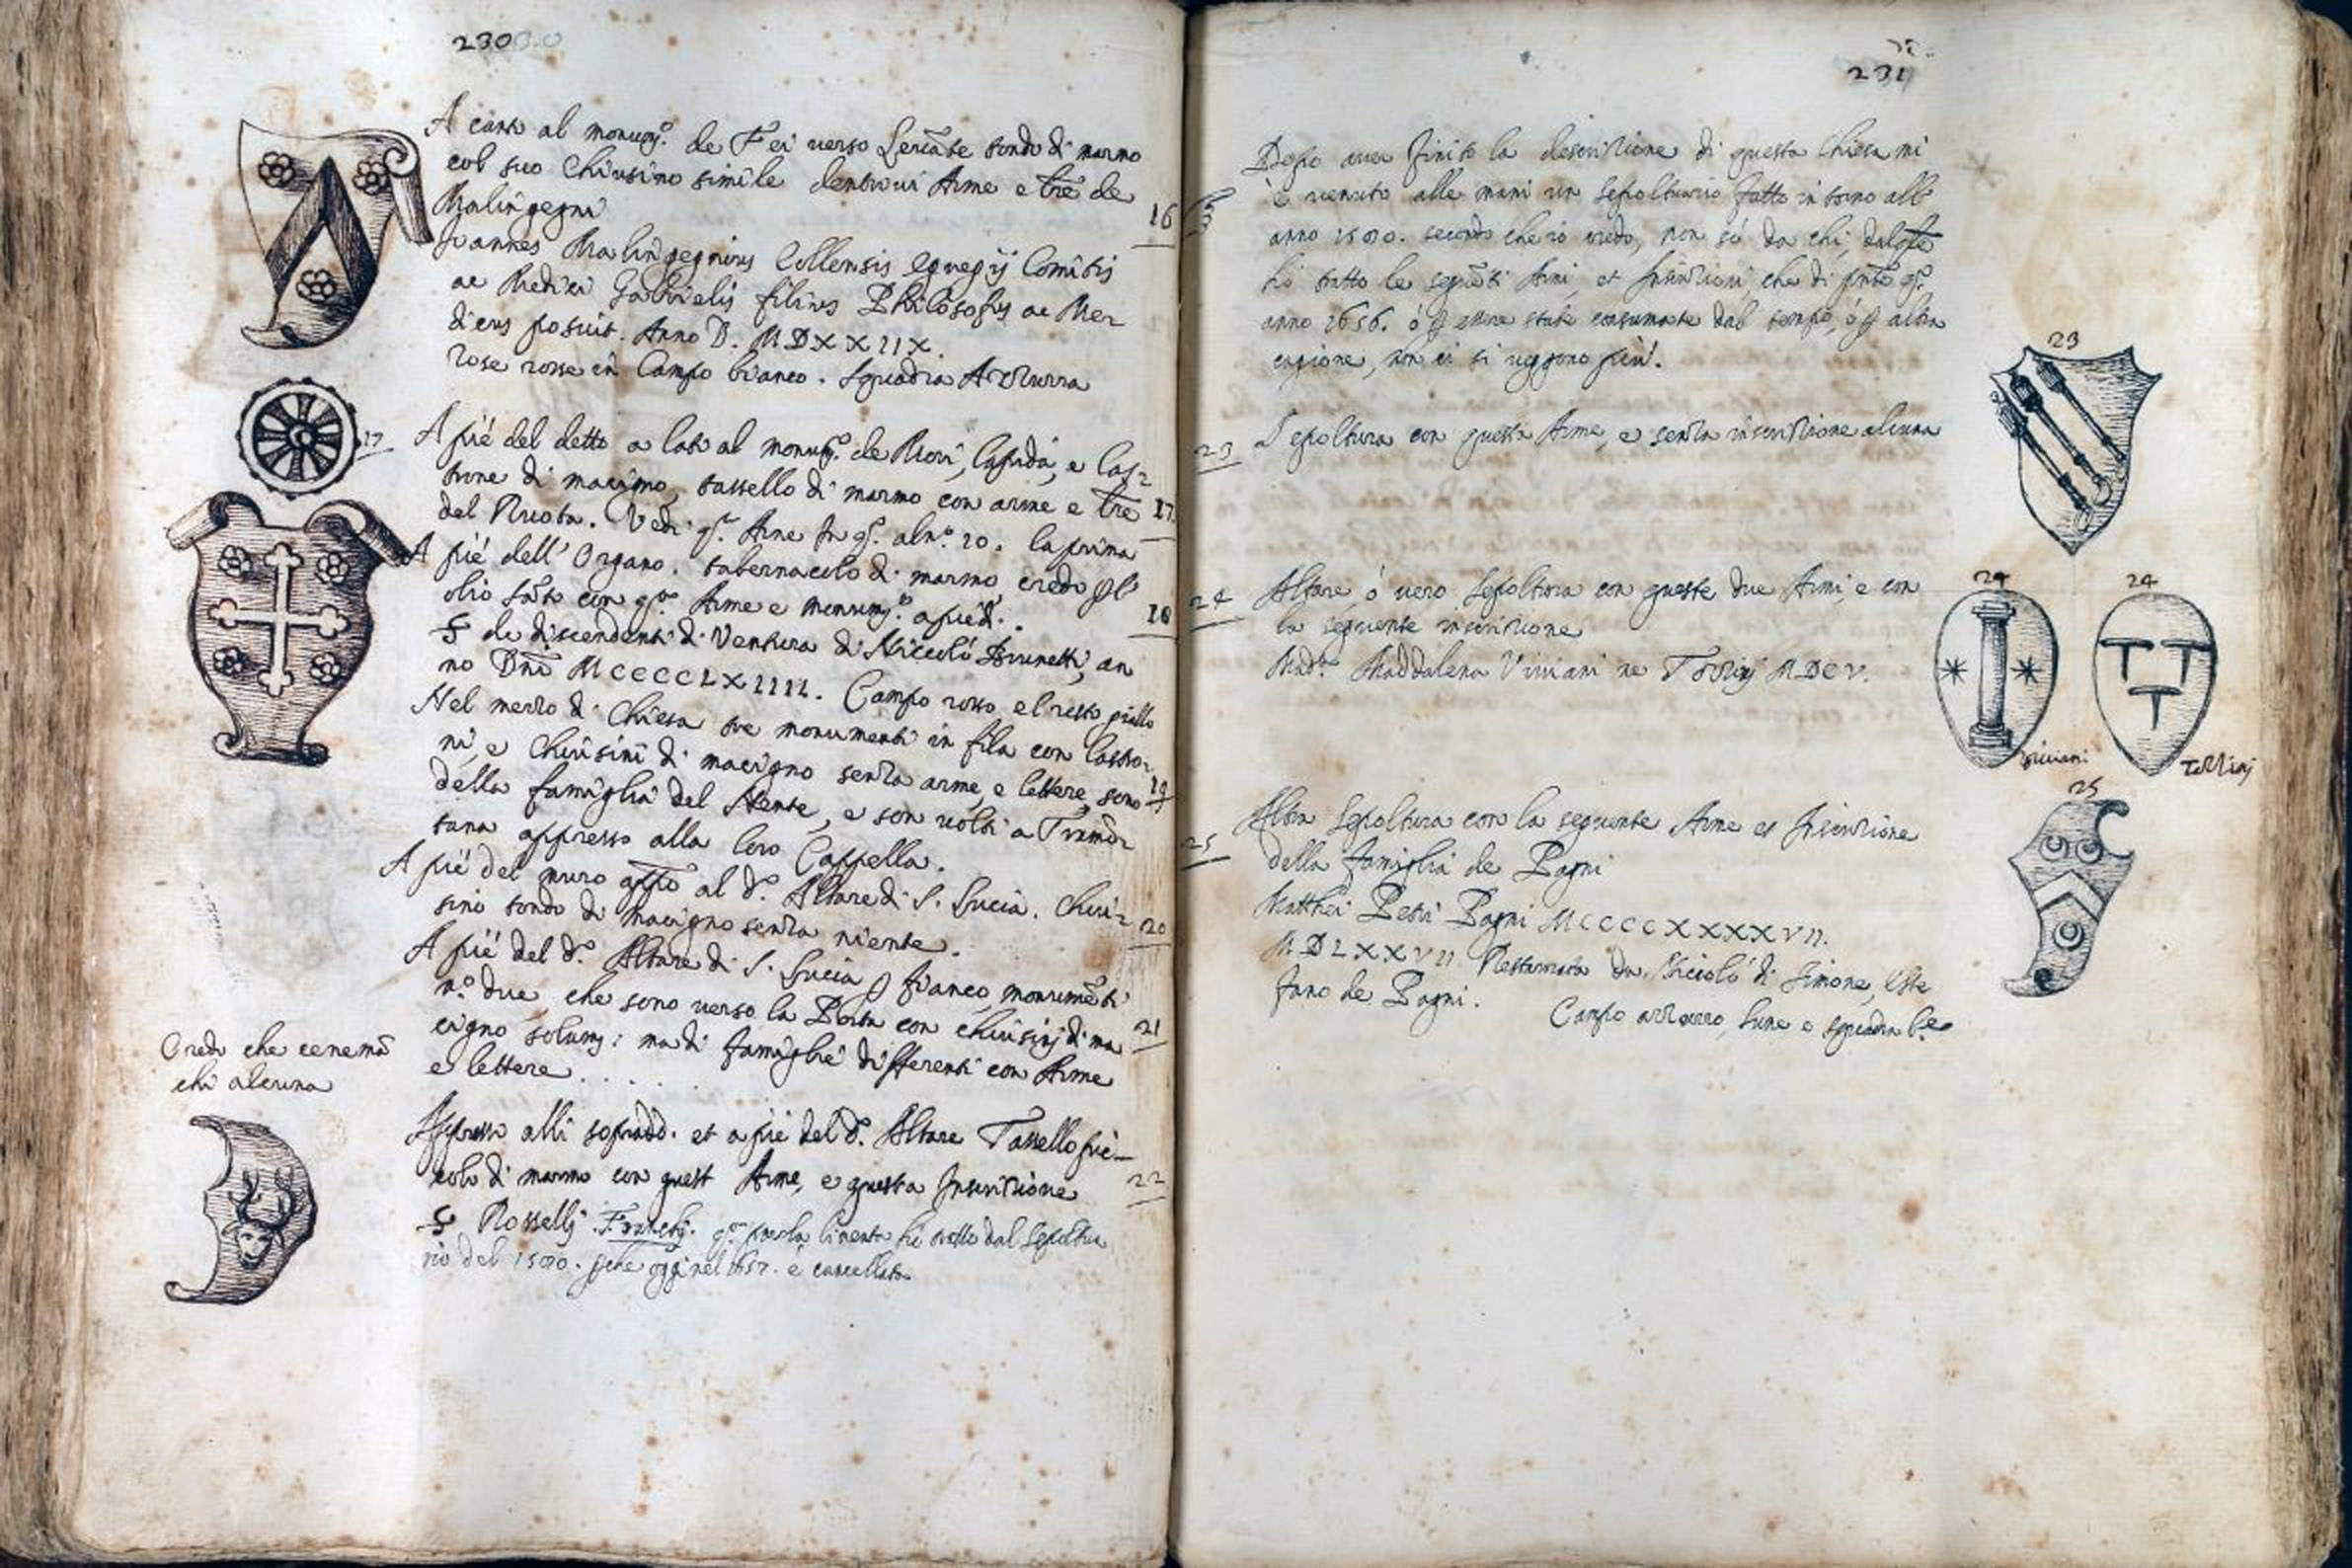 230
A canto al monum.to de Fei verso Levāte tondo di marmo
col suo Chiusino simile dentrovi Arme e lre de
Malingegni
16
Joannes Malingegnius Collensis Equegij Comitis
ac Medici Gabrielis filius Philosofus ac Me
dicus posuit. Anno D. MDXXIIX.
rose rosse in Campo bianco. Squadra Azzurra
17
A piè del detto a lato al monum.to de Mori, lapida, e las
trone di macigno, tassello di marmo con arme e lre
17
del Ruota. Vedi q.ta Arme in q.o al n.o 20. la prima
A piè dell' Organo. tabernacolo di marmo, credo pl'
olio sāto con q.ta Arme e monum.to a piedi.
18
S. de discendenti di Ventura di Niccolò Brunetti, an
no Dni MCCCCLXIIII. Campo rosso el resto giallo
Nel mezzo di Chiesa tre monumenti in fila con lastro
ni, e chiusini di macigno senza arme, e lettere, sono
19
della famiglia del Nente, e son volti a Tramō
tana appresso alla loro Cappella.
A piè del muro app.o al d.o Altare di S. Lucia. Chiu
sino tondo di macigno senza niente.
20
A piè del d.o Altare di S. Lucia p fianco, monumēti
n.o due, che sono verso la Porta con chiusinj di ma
21
cigno solam.: ma di famiglie differenti con Arme
e lettere . . . .
Credo che ce ne mā
chi alcuna
Appresso alli sopradd. et a piè del d.o Altare Tassello pic
colo di marmo con quest Arme, e questa Inscrizione
22
S. Rosselli Franchj. q.ta parola lineata hò tratto dal Sepoltua
rio del 1580. pche oggi nel 1657. è cancellata
231
Dopo aver finito la descrizione di questa Chiesa mi
è venuto alle mani un Sepoltuario fatto intorno all'
anno 1580. secondo che io credo, non sò da chi, dal q.le
hò tratto le seguēti Armi, et Inscrizioni, che di pn̄te q.o
anno 1656. ó p essere state consumate dal tempo, ó p altra
cagione, non ci si veggono più.
23
23
Sepoltura con questa Arme, e senza inscrizione alcuna
24
24
24
Altare, ó vero Sepoltura con queste due Armi, e con
la seguente inscrizione
Mad.a Maddalena Viviani ne Torrigj MDCV.
Viviani
Torrigj
25
25
Altra Sepoltura con la seguente Arme et Inscrizione
della famiglia de Pagni
Matthei Petri Pagni MCCCCXXXXVII.
MDLXXVII Restaurata da Niccolò di Simone, e Ste
fano de Pagni.
Campo azzurro, lune e squadra b.che